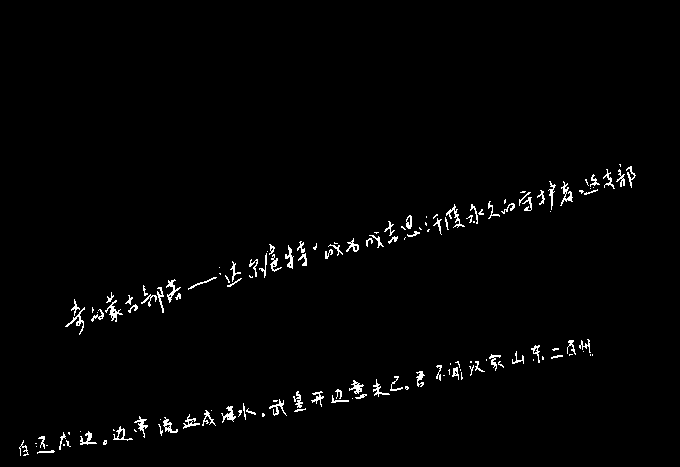 奇的蒙古部落——达尔扈特，成为成吉思汗陵永久的守护者。这支部
白还戍边。边亭流血成海水，武皇开边意未已。君不闻汉家山东二百州